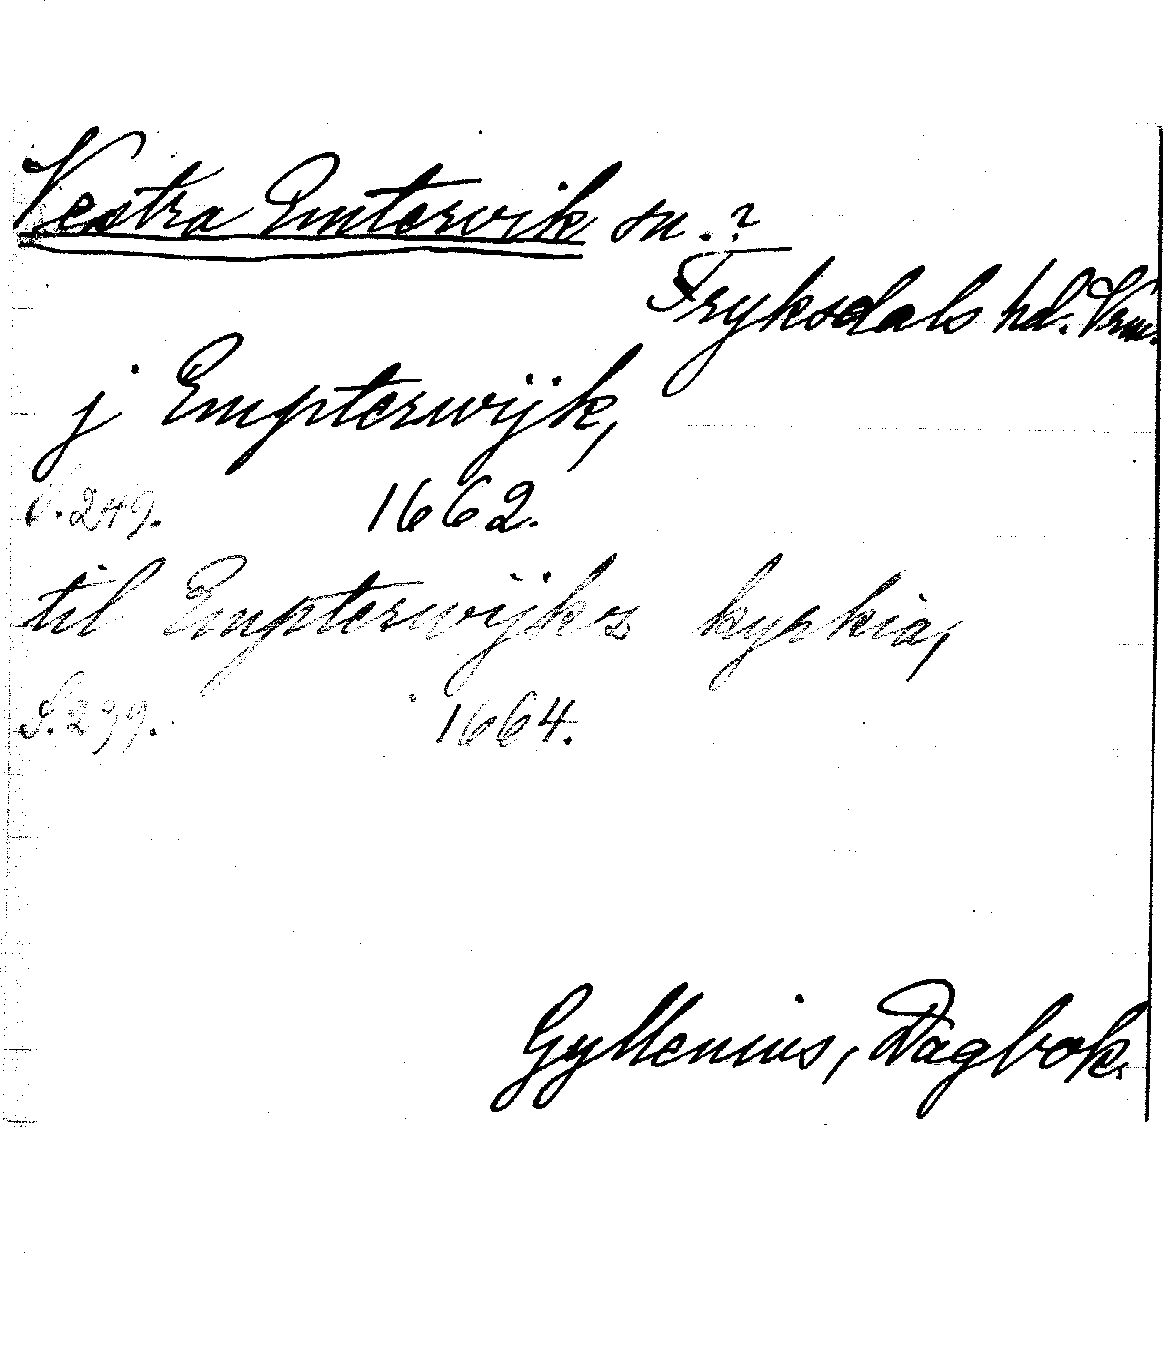 Vestra Emtervik sn.?
Fryksdals hd. Vrm.
j Empterwijk,
S. 249. 1662.
til Empterwijks kyrkia,
S. 299. 1664.
Gyllenius, Dagbok.